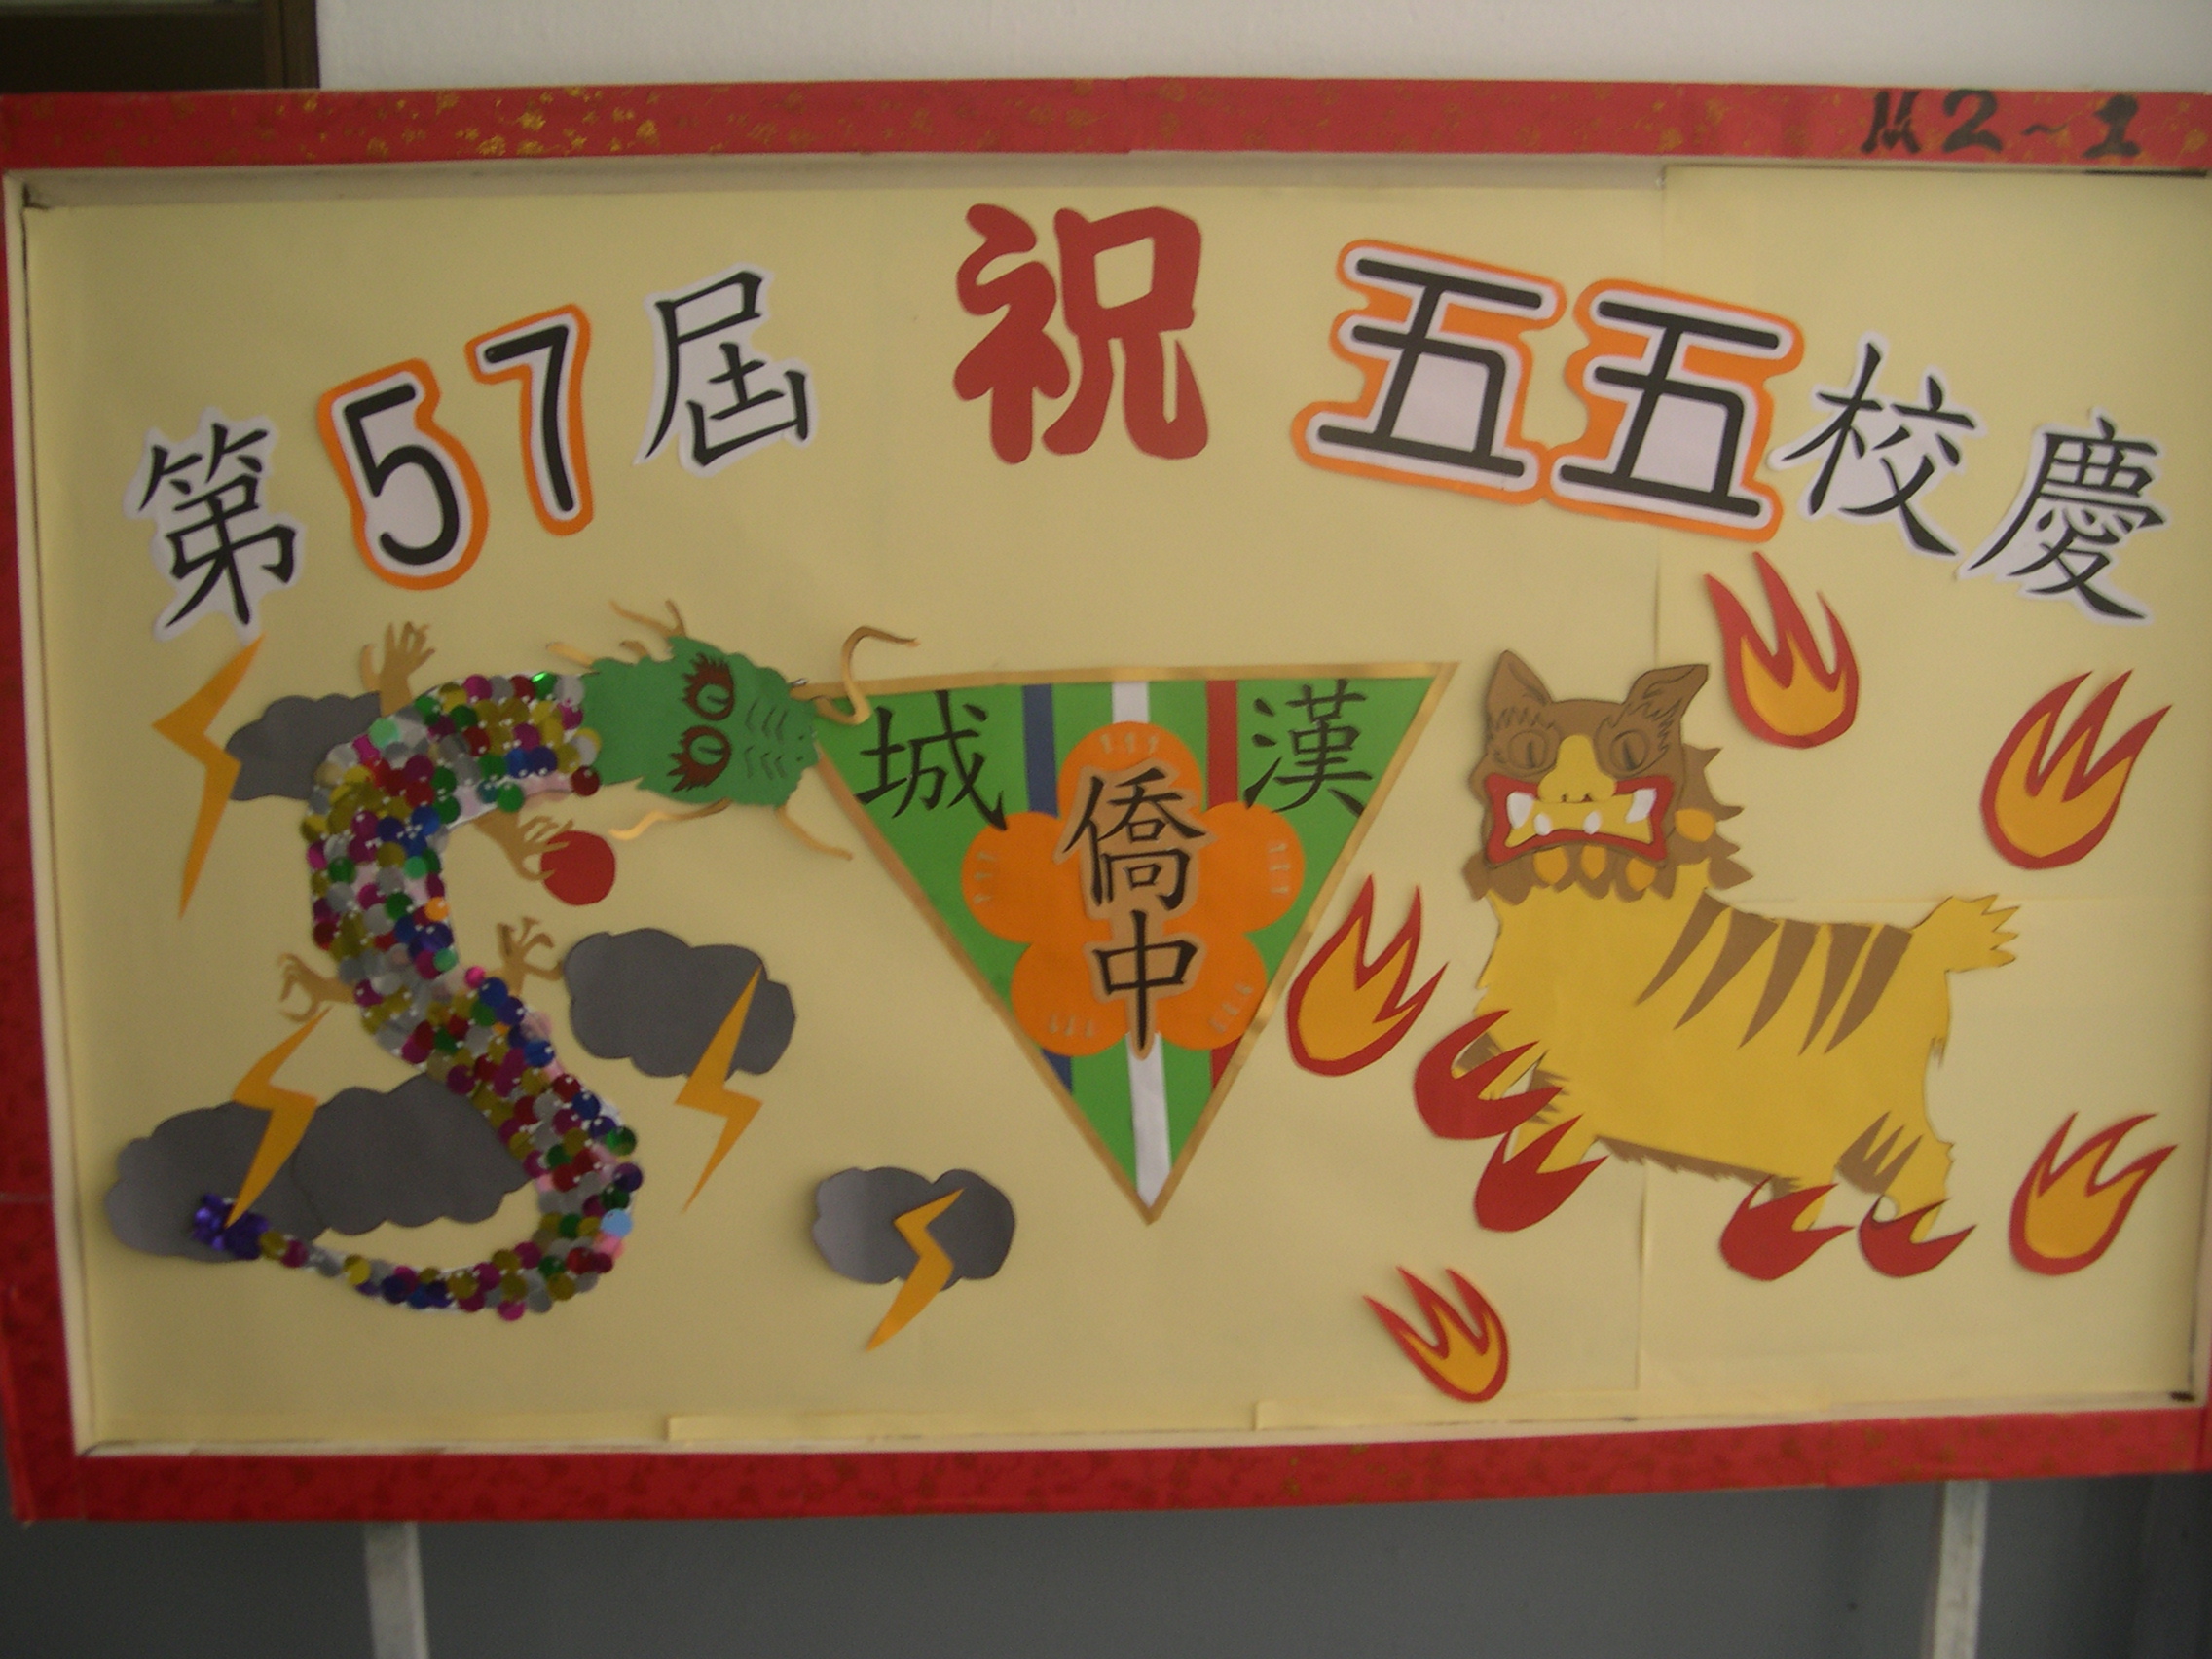 M2~1
第57屆 祝 五五校慶
城 漢
僑
中